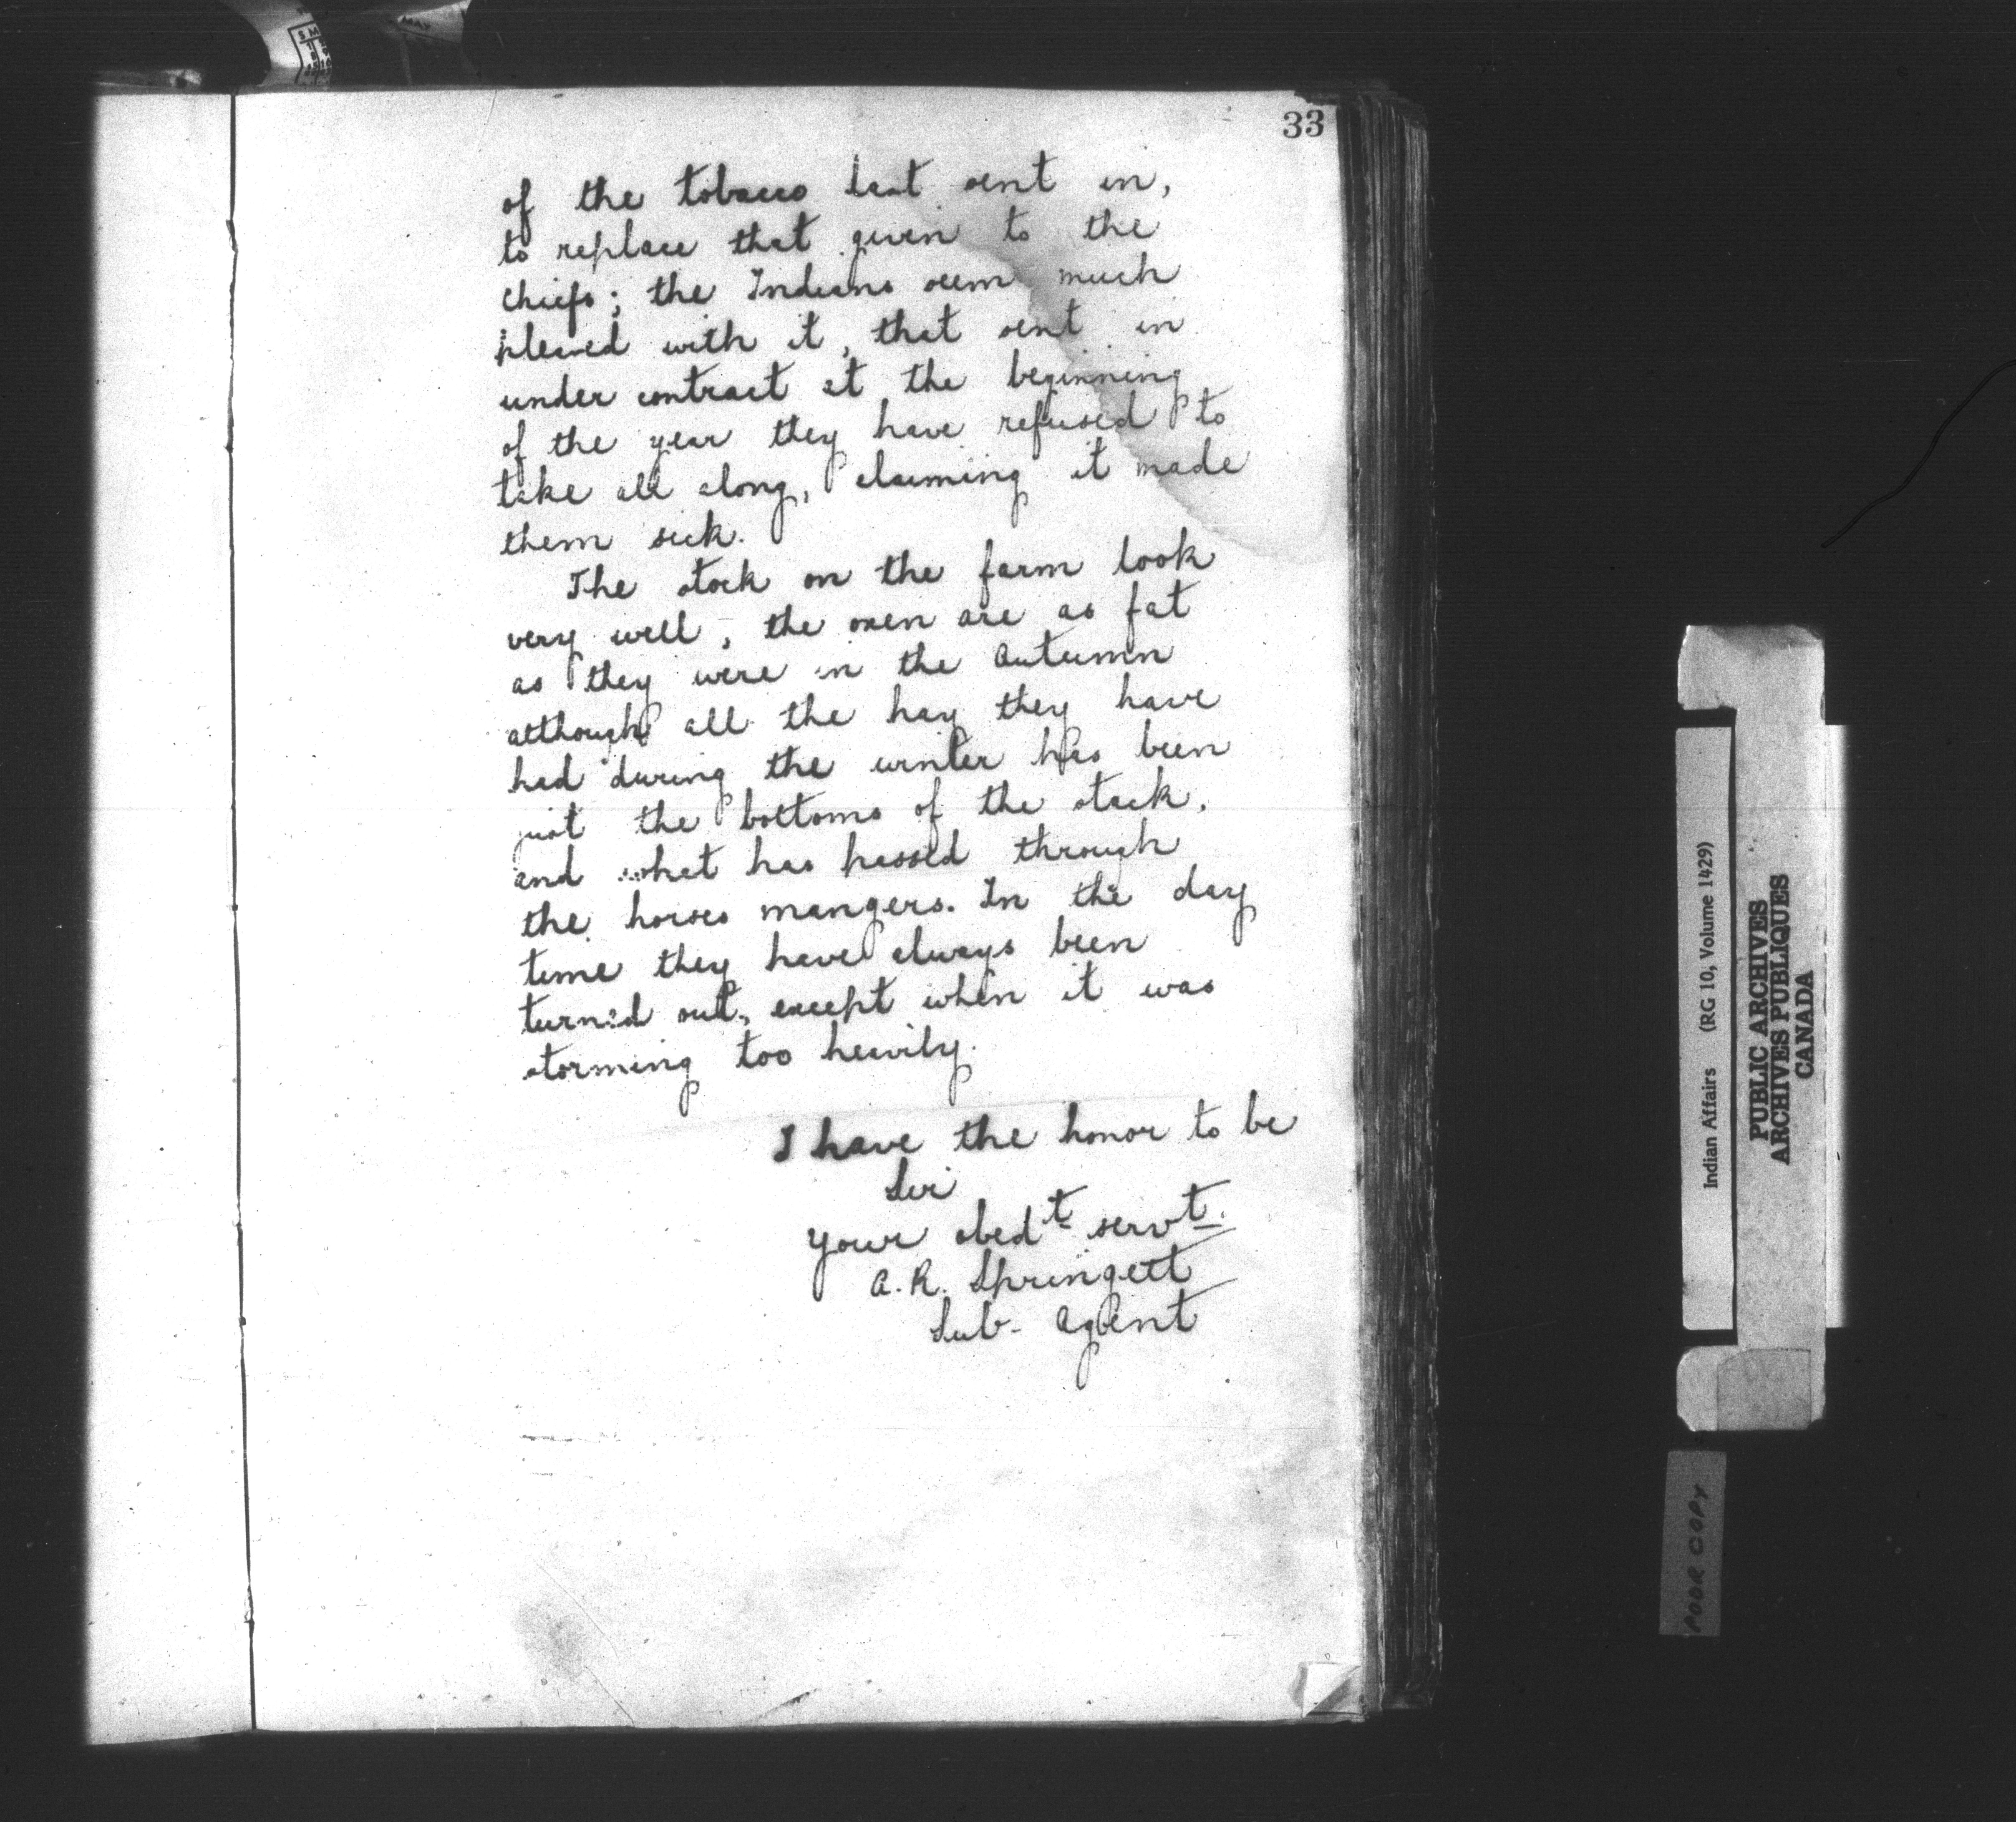 33
of the tobacco last sent in,
to replace that given to the
chiefs; the Indians seem much
pleased with it, that sent in
under contract at the beginning
of the year they have refused to
take all along, claiming it made
them sick.
The stock on the farm look
very well, the oxen are as fat
as they were in the Autumn
although all the hay they have
had during the winter has been
just the bottoms of the stack,
and what has passed through
the horses mangers. In the day
time they have always been
turned out, except when it was
storming too heavily.
I have the honor to be
Sir
Your obedt servt.
A. R. Springett
Sub-Agent
Indian Affairs (RG 10, Volume 1429)
PUBLIC ARCHIVES
ARCHIVES PUBLIQUES
CANADA
POOR COPY